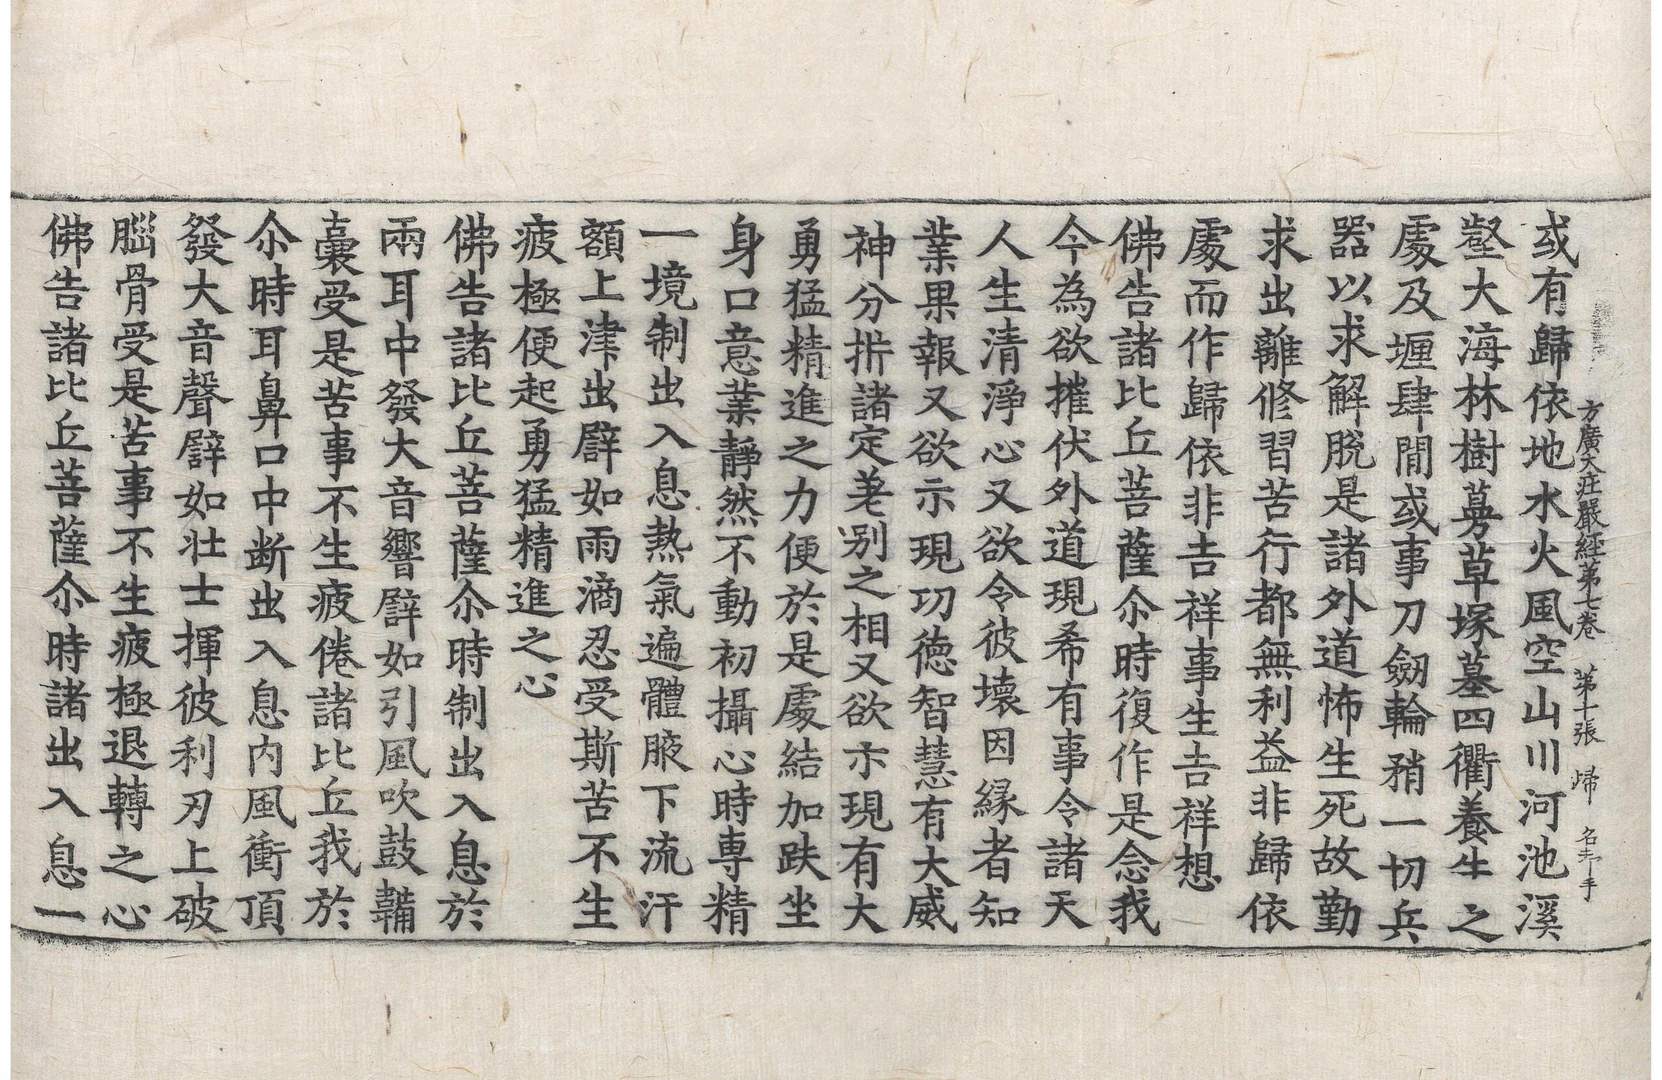 方廣大莊嚴經第七卷　第十張　歸　名手
或有歸依地水火風空山川河池溪
壑大海林樹蔓草塚墓四衢養生之
處及㕓肆間或事刀劒輪矟一切兵
器以求解脫是諸外道怖生死故勤
求出離修習苦行都無利益非歸依
處而作歸依非吉祥事生吉祥想
佛告諸比丘菩薩尒時復作是念我
今為欲摧伏外道現希有事令諸天
人生清淨心又欲令彼壞因緣者知
業果報又欲示現功德智慧有大威
神分㭊諸定差别之相又欲示現有大
勇猛精進之力便於是處結加趺坐
身口意業靜然不動初攝心時專精
一境制出入息熱氣遍體腋下流汗
額上津出譬如雨滴忍受斯苦不生
疲極便起勇猛精進之心
佛告諸比丘菩薩尒時制出入息於
兩耳中發大音響譬如引風吹鼓韛
囊受是苦事不生疲倦諸比丘我於
尒時耳鼻口中斷出入息內風衝頂
發大音聲譬如壯士揮彼利刃上破
腦骨受是苦事不生疲極退轉之心
佛告諸比丘菩薩尒時諸出入息一